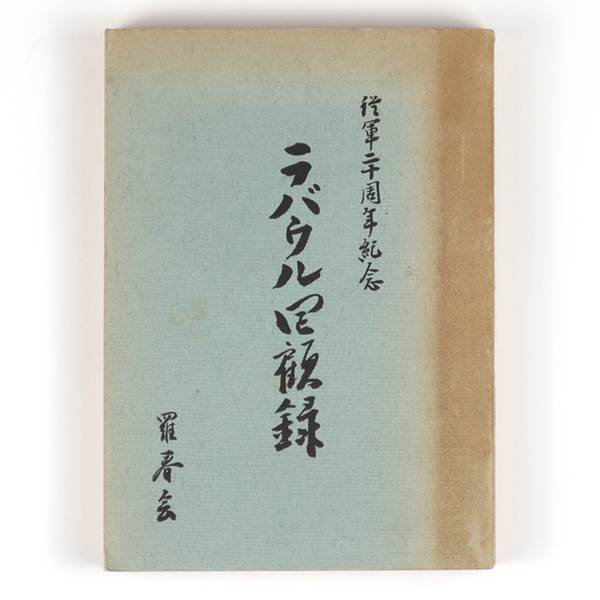 従軍二十周年紀念
ラバウル回顧録
羅春会